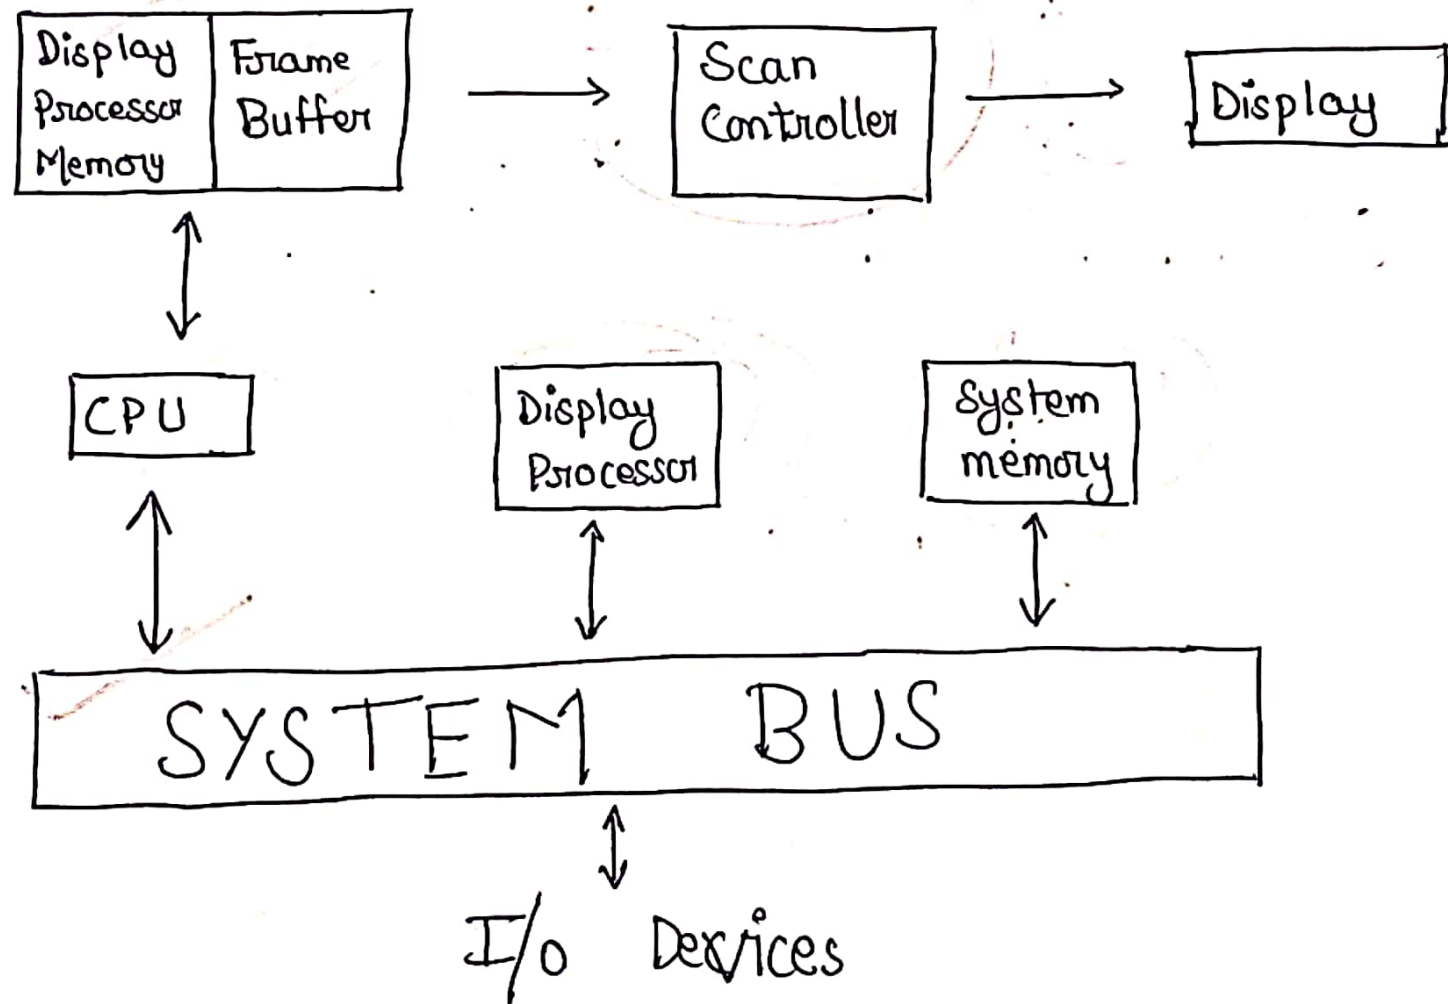 Display
Processor
Memory
Frame
Buffer
Scan
Controller
Display
CPU
Display
Processor
System
memory
SYSTEM BUS
I/O Devices